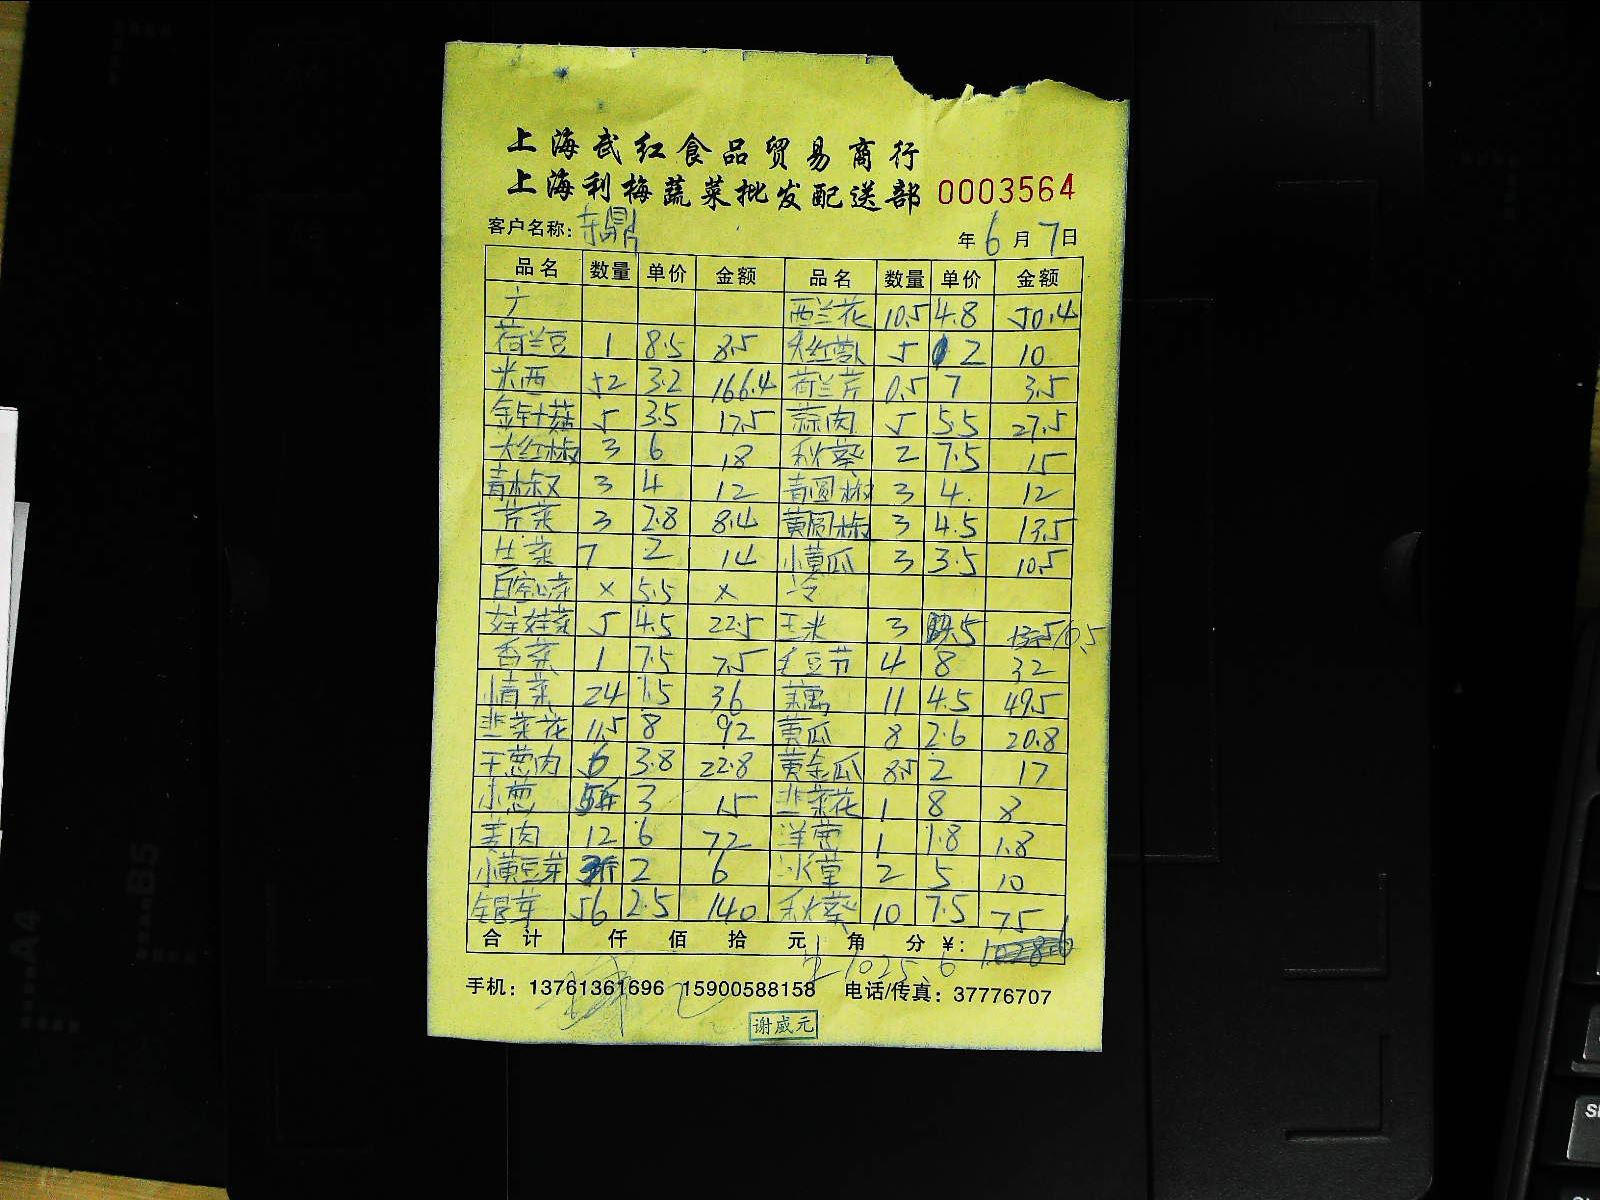 上海武红食品贸易商行
上海利梅蔬菜批发配送部 0003564
客户名称: 东鼎 年 6 月 7 日
品名 数量 单价 金额 品名 数量 单价 金额
西兰花 10.5 4.8 50.4
荷兰豆 1 8.5 8.5 大红萝卜 5 2 10
米西 52 3.2 166.4 荷兰芹 0.5 7 3.5
金针菇 5 3.5 17.5 蒜肉 5 5.5 27.5
大红椒 3 6 18 秋葵 2 7.5 15
青椒 3 4 12 青圆椒 3 4. 12
芹菜 3 2.8 8.4 黄圆椒 3 4.5 13.5
生菜 7 2 14 小黄瓜 3 3.5 10.5
白空心菜 × 5.5 × 冷
娃娃菜 5 4.5 22.5 玉米 3 5 10.5
香菜 1 7.5 7.5 毛豆节 4 8 32
小青菜 24 1.5 36 莲藕 11 4.5 49.5
韭菜花 11.5 8 92 黄瓜 8 2.6 20.8
干葱肉 6 3.8 22.8 黄金瓜 8.5 2 17
小葱 5斤 3 15 韭菜花 1 8 8
姜肉 12 6 72 洋葱 1 1.8 1.8
小黄豆芽 3斤 2 6 冰草 2 5 10
银芽 56 2.5 140 秋葵 10 7.5 75
合计 仟 佰 拾 元 角 分 ¥:
1025.6
手机: 13761361696 15900588158 电话/传真: 37776707
谢威元